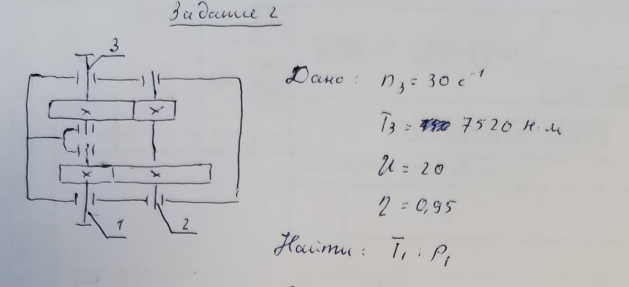 Задание 2
3
Дано: n₃ = 30 с⁻¹
T₃ = 7520 Н·м
U = 20
η = 0,95
1
2
Найти: T₁; P₁